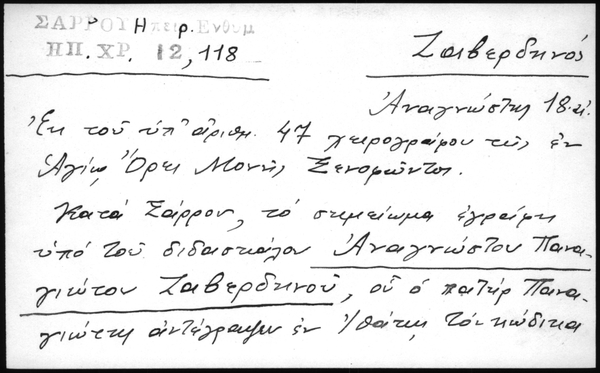 ΣΑΡΡΟΥ Ἠπειρ. Ἐνθυμ
ΠΠ. ΧΡ. 12, 118
Ζαβερδηνός
Ἀναγνώστης 18 αἰ.
Ἐκ τοῦ ὑπ' ἀριθμ. 47 χειρογράφου τῆς ἐν
Ἁγίῳ Ὄρει Μονῆς Ξενοφῶντος.
Κατά Σάρρον, τό σημείωμα ἐγράφη
ὑπό τοῦ διδασκάλου Ἀναγνώστου Πανα-
γιώτου Ζαβερδηνοῦ, οὗ ὁ πατήρ Πανα-
γιώτης ἀντέγραψεν ἐν Ἰθάκῃ τόν κώδικα